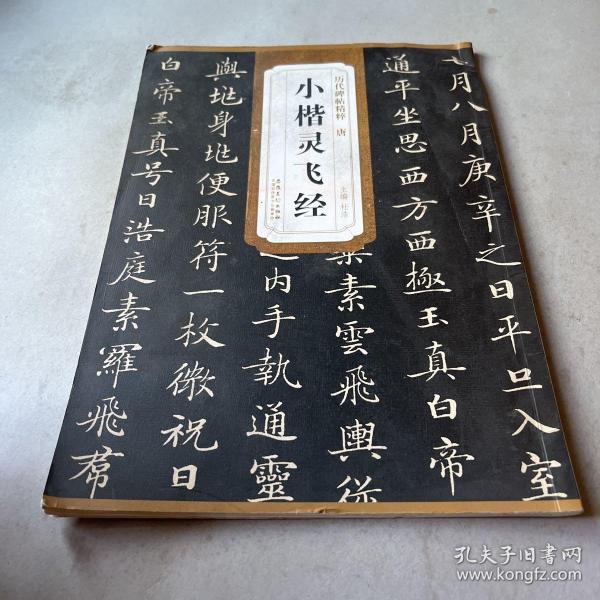 历代碑帖精粹 唐
小楷灵飞经
主编 杜浩
安徽美术出版社
七月八月庚辛之日平旦入室
通平坐思西方西極玉真白帝
素雲飛輿從
内手執通靈
與地身地便服符一枚微祝日
白帝玉真号日浩庭素羅飛帬
孔夫子旧书网
www.kongfz.com